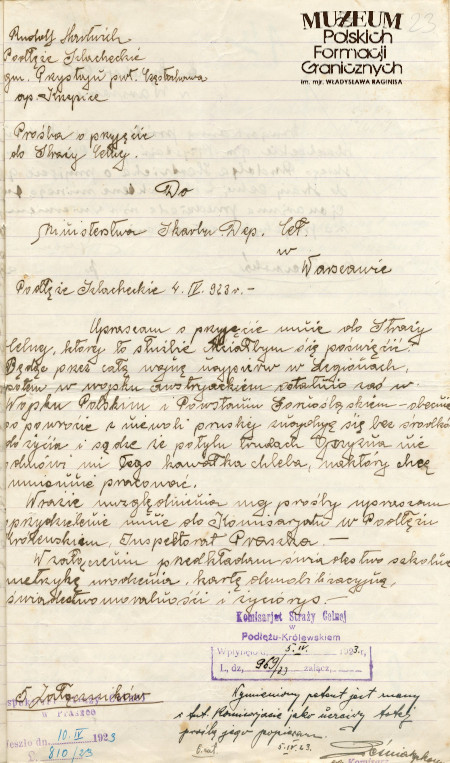 MUZEUM
Polskich
Formacji
Granicznych
im. mjr. WŁADYSŁAWA RAGINISA
23
Rudolf
Podłęże Szlacheckie
gm. Przystajń pwt. Częstochowa
ap.
Prośba o przyjęcie
do Straży Celnej.
Do
Ministerstwa Skarbu Dep. Ceł.
w
Warszawie
Podłęże Szlacheckie 4. IV. 923 r. –
Upraszam o przyjęcie mnie do Straży
Celnej, której to służbie chciałbym się poświęcić.
Będąc przez całą wojnę najpierw w Legionach,
potem w wojsku austryackiem ostatnio zaś w
Wojsku Polskim i Powstaniu Górnośląskiem – obecnie
po powrocie z niewoli pruskiej znajduję się bez środków
do życia i sądzę że po tylu trudach Ojczyzna nie
odmówi mi tego kawałka chleba, na który chcę
sumiennie pracować.
W razie uwzględnienia mej prośby upraszam
przydzielenie mnie do Komisarjatu w Podłężu
Królewskiem, Inspektorat Praszka. –
W załączeniu przedkładam świadectwo szkolne
metrykę urodzenia, kartę demobilizacyjną,
świadectwo moralności i życiorys. –
Komisarjat Straży Celnej
w
Podłężu-Królewskiem
Wpłynęło d. 5. IV. 1923 r.
L. dz. 969/23 załącz.
5 Załączników
w Praszce
10. IV 1923
D. 810/23
Wymieniony petent jest znany
w tut. Komisarjacie jako uczciwy
prośbę jego popieram.
5. IV. 23.
Komisarz